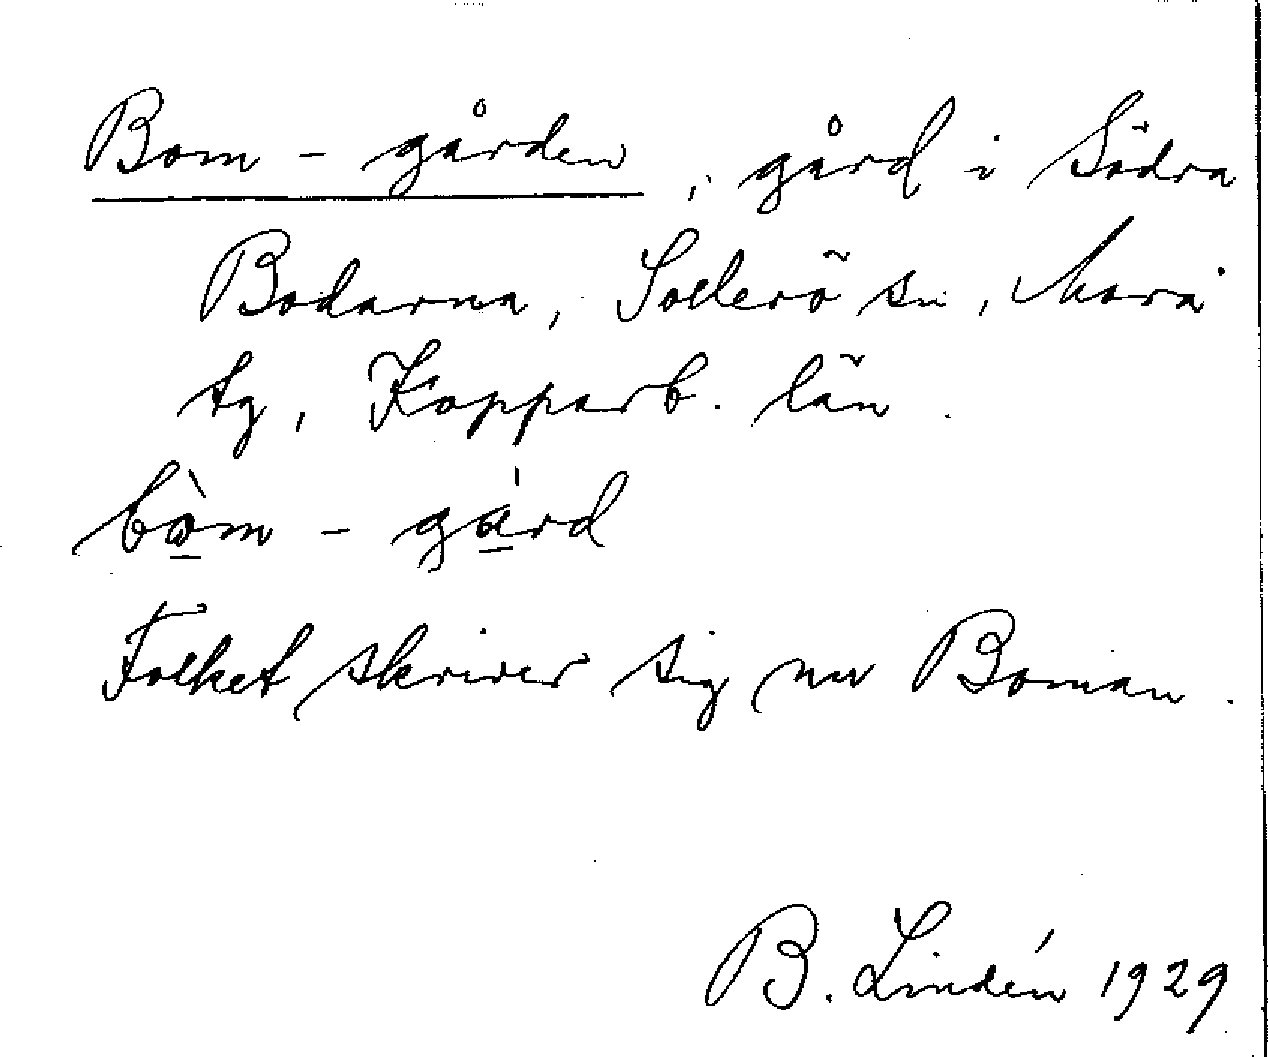 Bom-gården, gård i Södra
Bodarna, Sollerö sn, Mora
tg, Kopparb. län.
bò̱m - ga̱̍rd
Folket skriver sig nu Boman.
B. Lindén 1929